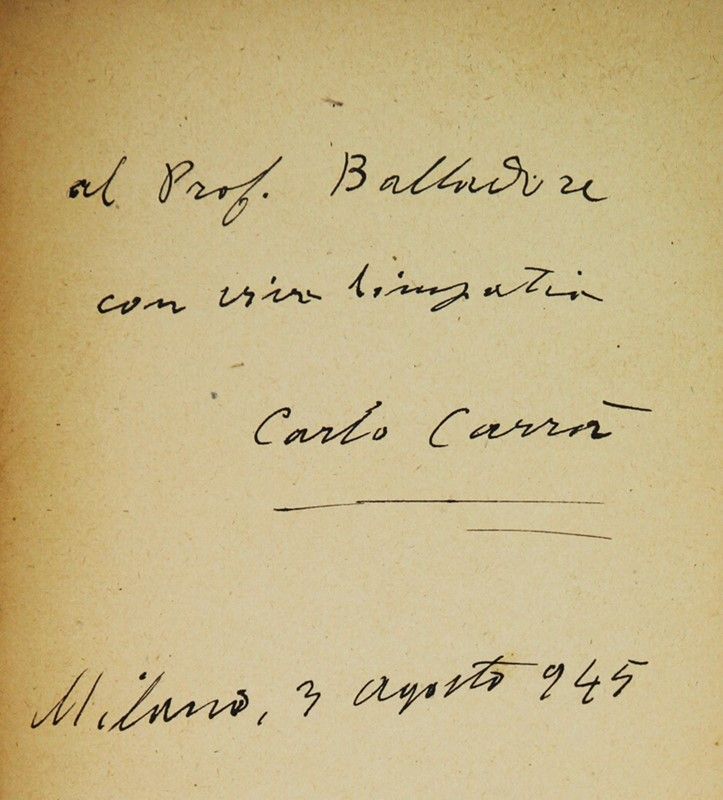 al Prof. Balladore
con viva simpatia
Carlo Carrà
Milano, 3 agosto 945